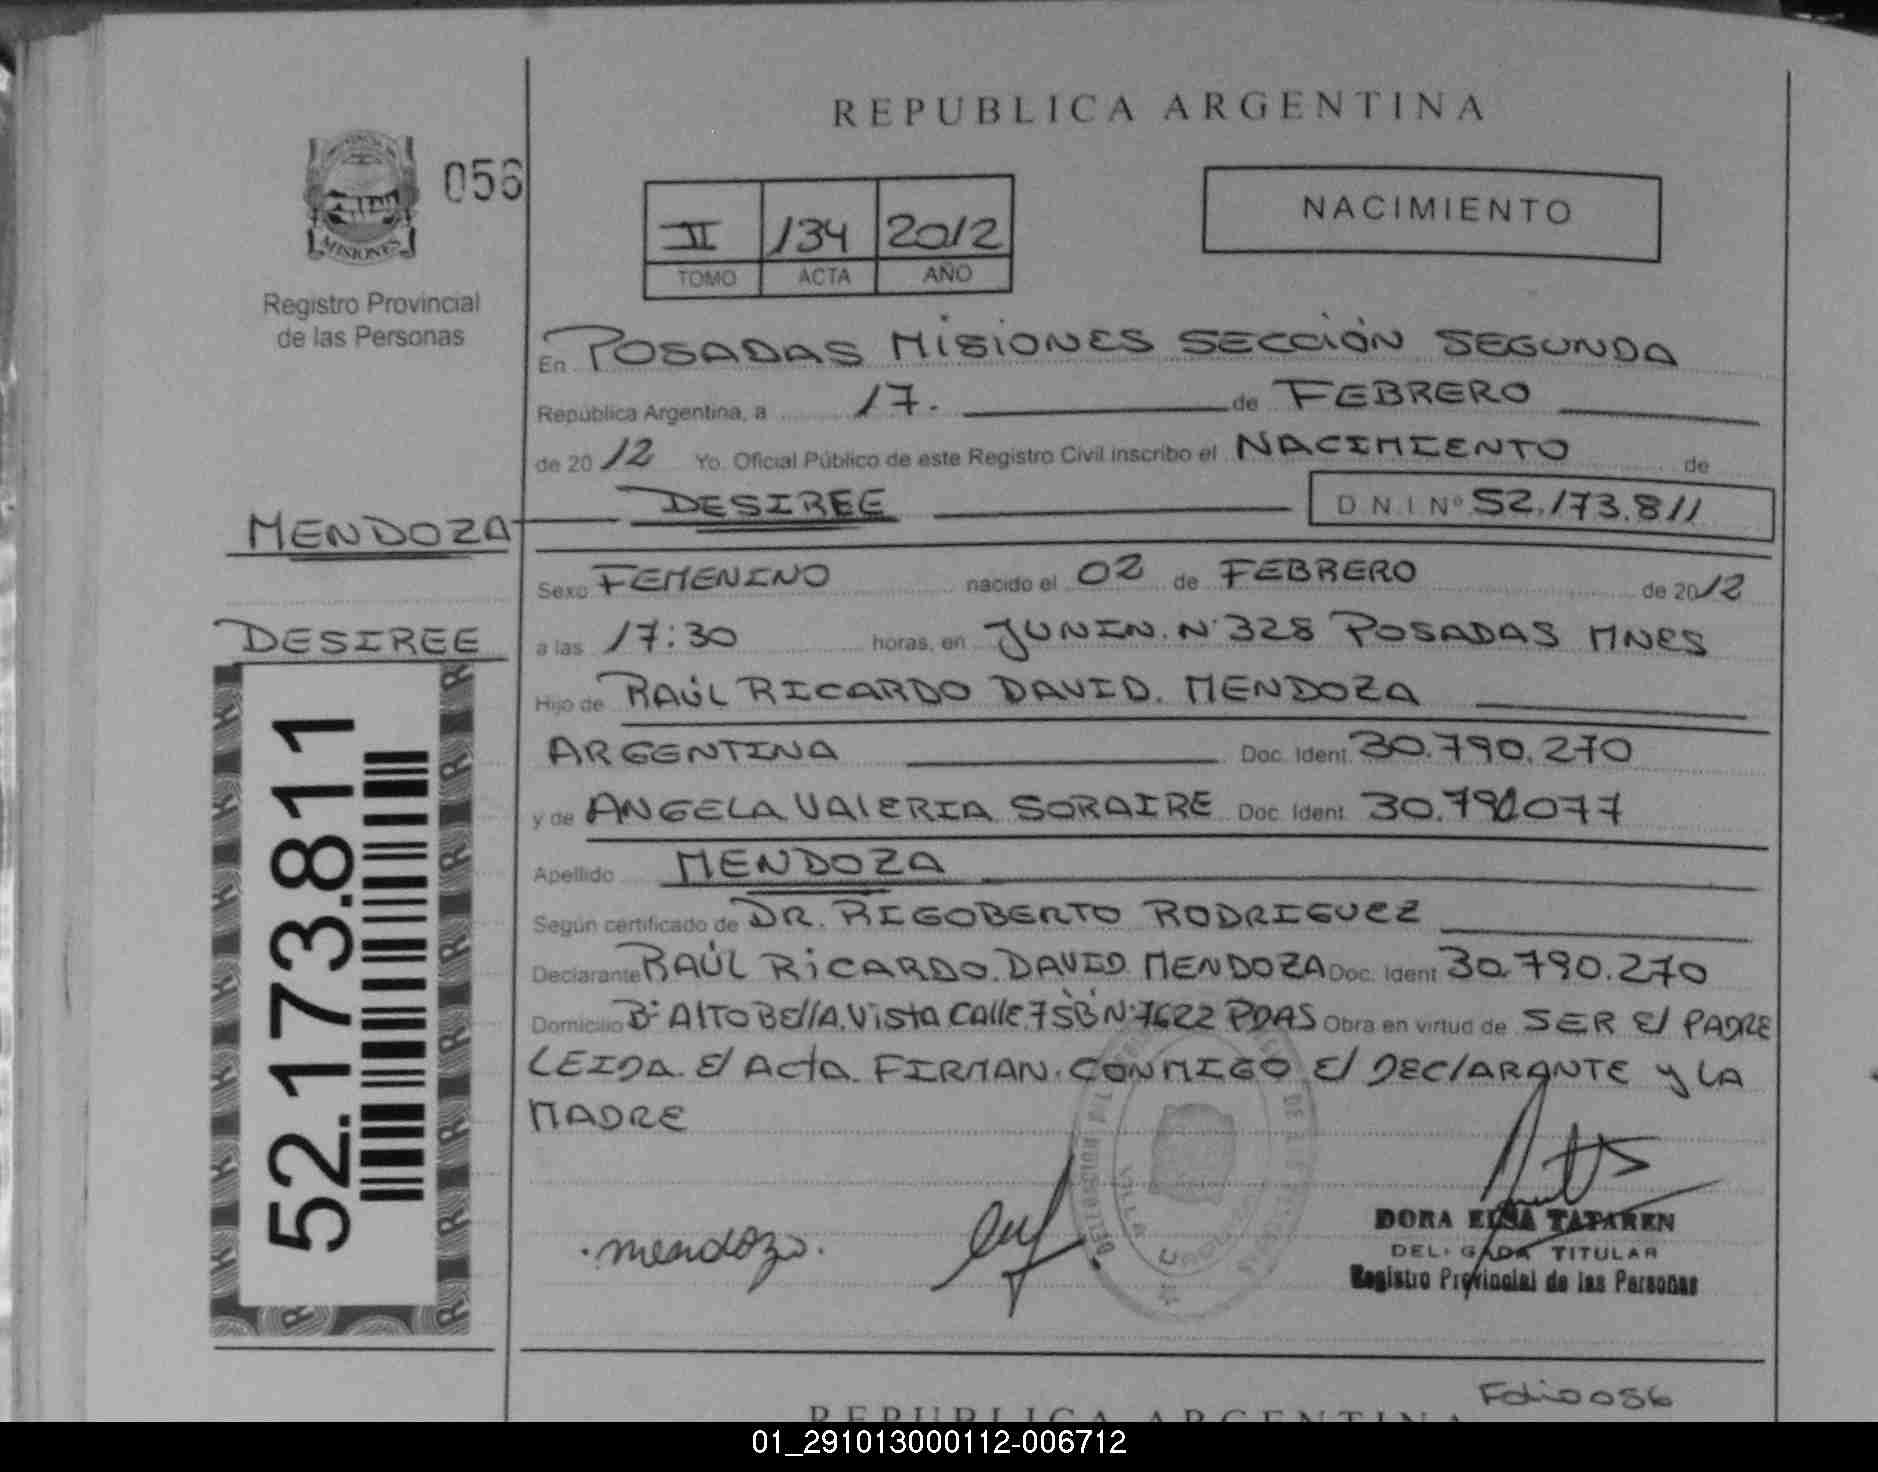 REPUBLICA ARGENTINA
056
NACIMIENTO
II 134 2012
TOMO ACTA AÑO
MISIONES
Registro Provincial
de las Personas
En POSADAS MISIONES SECCIÓN SEGUNDA
República Argentina, a 17. de FEBRERO
de 2012 Yo. Oficial Público de este Registro Civil inscribo el NACIMIENTO de
MENDOZA DESIREE D N I Nº 52.173.811
Sexo FEMENINO nacido el 02 de FEBRERO de 2012
DESIREE
a las 17:30 horas, en JUNIN. Nº 328 POSADAS MNES
Hijo de RAÚL RICARDO DAVID. MENDOZA
ARGENTINA Doc. Ident. 30.790.270
y de ANGELA VAlERIA SORAIRE Doc. Ident.
Apellido MENDOZA
Según certificado de DR. RIGOBERTO RODRIGUEZ
Declarante RAÚL RICARDO. DAVID MENDOZA Doc. Ident 30.790.270
Domicilio Bº AlTO BEllA. VistA CAllE 75B Nº 7622 PDAS Obra en virtud de SER El PADRE
LEIDA El ActA FIRMAN CONMIGO El DEClARANTE y LA
MADRE
52.173.811
mendoza.
DORA ELSA TATAREN
DELEGADA TITULAR
Registro Provincial de las Personas
Folio 056
REPUBLICA ARGENTINA
01_291013000112-006712